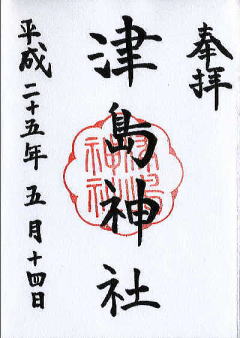 奉拝
津島神社
津島神社
平成二十五年五月十四日